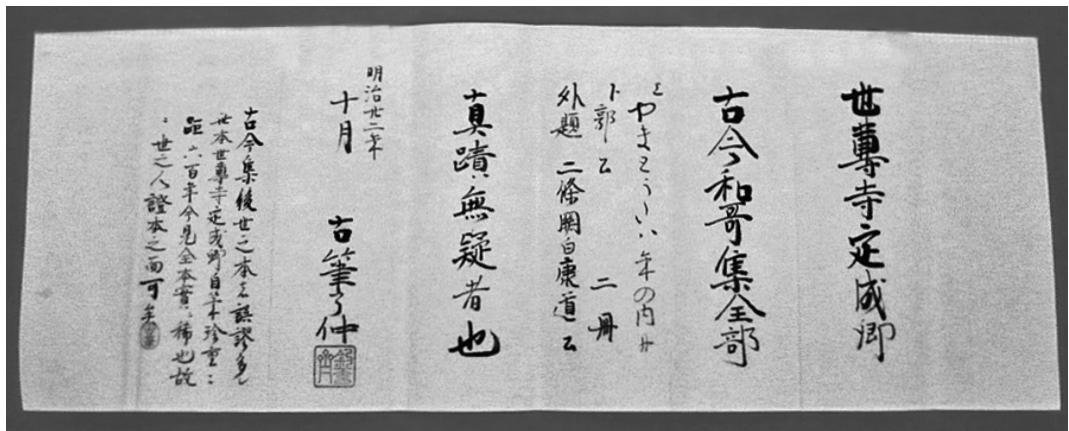 世尊寺定成卿
古今和哥集全部
やまとうたハ 年の内ニ
郭公 二冊
外題 二條関白康道公
真蹟無疑者也
明治廿二年
十月 古筆了仲
古今集後世之本者誤謬多
世本世尊寺定成卿自筆珍重
距六百年今見全本實稀也故
世之人證本之而可